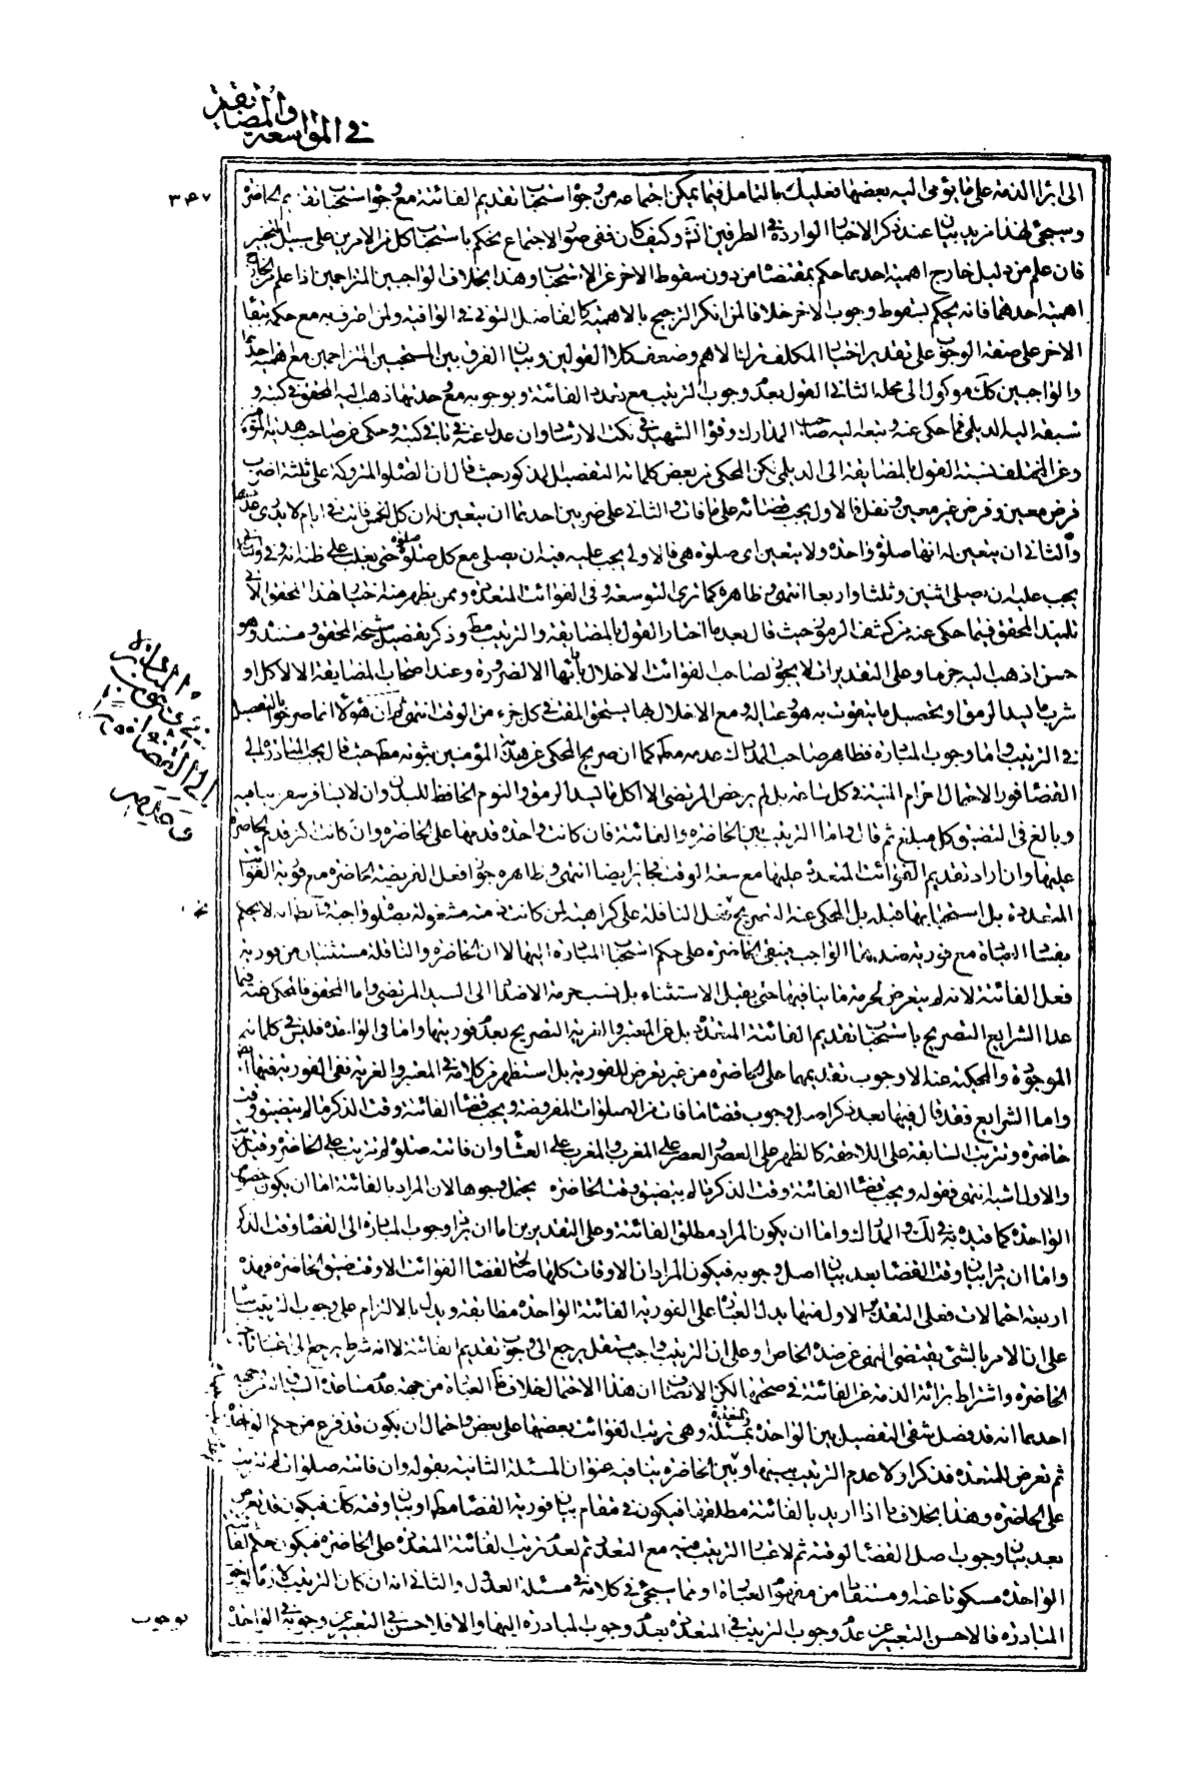 في المواسعة والمضايقة
٣٤٧
الى ابراء الذمة على ما يؤمي اليه بعضها فعليك بالتامل فيما يمكن اجتماعه من جواز استحباب تقديم الفائتة مع جواز استحباب تقديم الحاضرة
وسيجئ لهذا مزيد بيان عند ذكر الاخبار الواردة في الطرفين انش وكيف كان ففي صور الاجتماع يحكم باستحباب كل من الامرين على سبيل التخيير
فان علم من دليل خارج اهمية احدهما حكم بمقتضاه من دون سقوط الاخر عن الاستحباب وهذا بخلاف الواجبين المتزاحمين اذا علم من الخارج
اهمية احدهما فانه يحكم بسقوط وجوب الاخر خلافا لمن انكر الترجيح بالاهمية كالفاضل التوني في الوافية ولمن اعترف به مع حكمه ببقاء
الاخر على صفة الوجوب على تقدير اختيار المكلف ترك الاهم وضعف كلا القولين وبيان الفرق بين المستحبين المتزاحمين مع اهمية احدهما
والواجبين كك موكول الى محله الثاني القول بعدم وجوب الترتيب مع تعدد الفائتة وبوجوبه مع وحدتها ذهب اليه المحقق في كتبه و
سبقه اليه الديلمي فيما حكى عنه وتبعه اليه صاحب المدارك وقواه الشهيد في نكت الارشاد وان عدل عنه في باقي كتبه وحكى عن صاحب هدية المؤمنين
وعن المختلف نسبة القول بالمضايقة الى الديلمي لكن المحكي من بعض كلماته التفصيل المذكور حيث قال ان الصلوة المتروكة على ثلثة اضرب
فرض معين وفرض غير معين ونفل فالاول يجب قضائه على ما فات والثاني على ضربين احدهما ان يتعين له ان كل الخمس فاتت في ايام لا يدري عددها
والثاني ان يتعين له انها صلوة واحدة ولا يتعين اي صلوة هي فالاولى يجب عليه فيه ان يصلي مع كل صلوة صلوة حتى يغلب على ظنه انه وفى والثاني
يجب عليه ان يصلي اثنين وثلثا واربعا انتهى وظاهره كما ترى التوسعة في الفوائت المتعددة وممن يظهر منه اختيار هذا المحقق الابي
تلميذ المحقق فيما حكى عنه من كشف الرموز حيث قال بعد ما اختار القول بالمضايقة والترتيب مطلقا وذكر تفصيل شيخه المحقق ومستنده وهو
حسن اذهب اليه جزما وعلى التقديرات لا يجوز لصاحب الفوائت الاخلال بادائها الا لضرورة وعند اصحاب المضايقة الا لاكل و
شرب ما يسد الرمق او تحصيل ما يتقوت به هو وعياله ومع الاخلال بها يستحق المقت في كل جزء من الوقت انتهى ثم ان هؤلاء انما صرحوا بالتفصيل
في الترتيب واما وجوب المبادرة فظاهر صاحب المدارك عدمه مطلقا كما ان صريح المحكي عن هدية المؤمنين ثبوته مطلقا حيث قال يجب المبادرة الى
القضاء فورا لاحتمال اخترام المنية في كل ساعة بل لم يرخص المرتضى الا اكل ما يسد الرمق والنوم الحافظ للبدن وان لا يسافر سفرا ينافيه
وبالغ في التضيق كل مبلغ ثم قال واما الترتيب بين الحاضرة والفائتة فان كانت واحدة قدمها على الحاضرة وان كانت اكثر قدم الحاضرة
عليها وان اراد تقديم الفوائت المتعددة عليها مع سعة الوقت فجائز ايضا انتهى وظاهره جواز فعل الفريضة الحاضرة مع فورية الفوائت
المتعددة بل استحبابها قبله بل المحكي عنه التصريح بفعل النافلة على كراهية لمن كانت ذمته مشغولة بصلوة واجبة
فعل الفائتة لانه لم يتعرض لحرمة ما ينافيها حتى يقبل الاستثناء بل نسب حرمة الاضداد الى السيد المرتضى واما المحقق فالمحكي عنه فيما
عدا الشرايع التصريح باستحباب تقديم الفائتة المتعددة بل عن المعتبر والعزية التصريح بعدم فوريتها واما في الواحدة فليس في كلماته
الموجودة والمحكية عنه الا وجوب تقديمها على الحاضرة من غير تعرض للفورية بل استظهر من كلامه في المعتبر والعزية نفي الفورية فيها ايضا
واما الشرايع فقد قال فيها بعد ذكر اصل وجوب قضاء ما فات من الصلوات المفروضة ويجب قضاء الفائتة وقت الذكر ما لم يتضيق وقت
حاضرة وترتيب السابقة على اللاحقة كالظهر على العصر والعصر على المغرب والمغرب على العشاء وان فاتته صلوة لم تترتب على الحاضرة وقيل تترتب
والاول اشبه انتهى فقوله ويجب قضاء الفائتة وقت الذكر ما لم يتضيق وقت الحاضرة يحتمل وجوها لان المراد بالفائتة اما ان يكون خصوص
الواحدة كما قيده به في لك والمدارك واما ان يكون المراد مطلق الفائتة وعلى التقديرين اما ان يراد وجوب المبادرة الى القضاء وقت الذكر
واما ان يراد بيان وقت القضاء بعد بيان اصل وجوبه فيكون المراد ان الاوقات كلها صالحة لقضاء الفوائت الا وقت ضيق الحاضرة فهذه
اربعة احتمالات فعلى التقدير الاول منها يدل العبارة على الفورية الفائتة الواحدة مطابقة ويدل بالالتزام على وجوب الترتيب بناء
على ان الامر بالشئ يقتضي النهي عن ضده الخاص وعلى ان الترتيب واجب مستقل يرجع الى وجوب تقديم الفائتة لا انه شرط يرجع الى اعتبار تاخير
الحاضرة واشتراط برائة الذمة عن الفائتة في صحتها لكن الانصاف ان هذا الاحتمال خلاف ظاهر العبارة من جهة عدم مساعدة السياق له من جهة
احدهما انه قد فصل نفي التفصيل بين الواحدة والمتعددة بمسئلة وهي ترتيب الفوائت بعضها على بعض واحتمال ان يكون قد فرغ من حكم الواحدة
ثم تعرض للمتعددة فذكر اولا عدم الترتيب بينها وبين الحاضرة ينافيه عنوان المسئلة الثانية بقوله وان فاتته صلوات لم تترتب
على الحاضرة وهذا بخلاف ما اذا اريد بالفائتة مطلقها فيكون في مقام بيان فورية القضاء مطلقا او بيان وقته كك فيكون قد تعرض
بعد بيان وجوب اصل القضاء لوقته ثم لاعتبار الترتيب فيه مع التعدد ثم لعدم ترتيب الفائتة المتعددة على الحاضرة فيكون حكم الفائتة
الواحدة مسكوتا عنه او مستفادا من مفهوم العبارة او مما سيجئ في كلامه في مسئلة العدول والثاني انه ان كان الترتيب لازما لوجوب
المبادرة فالاحسن التعبير عن عدم وجوب الترتيب في المتعددة بعدم وجوب المبادرة اليها والا فلا حسن في التعبير عن وجوبه في الواحدة
بوجوب